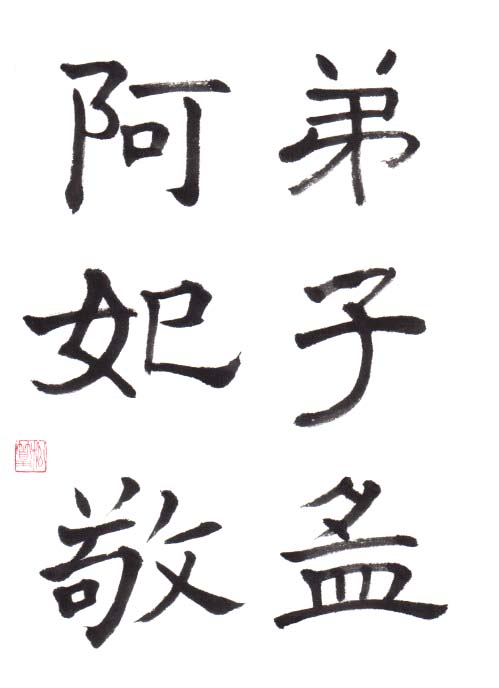 弟子孟
阿妃敬